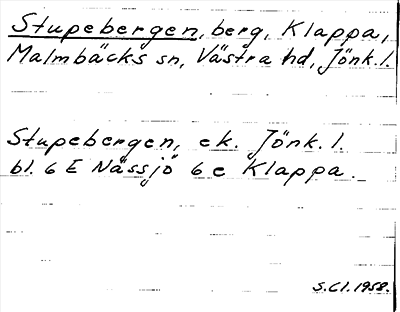 Stupebergen, berg, Klappa,
Malmbäcks sn, Västra hd, Jönk. l.
Stupebergen, ek. Jönk. l.
bl. 6 E Nässjö 6 e Klappa.
S.Cl. 1958.